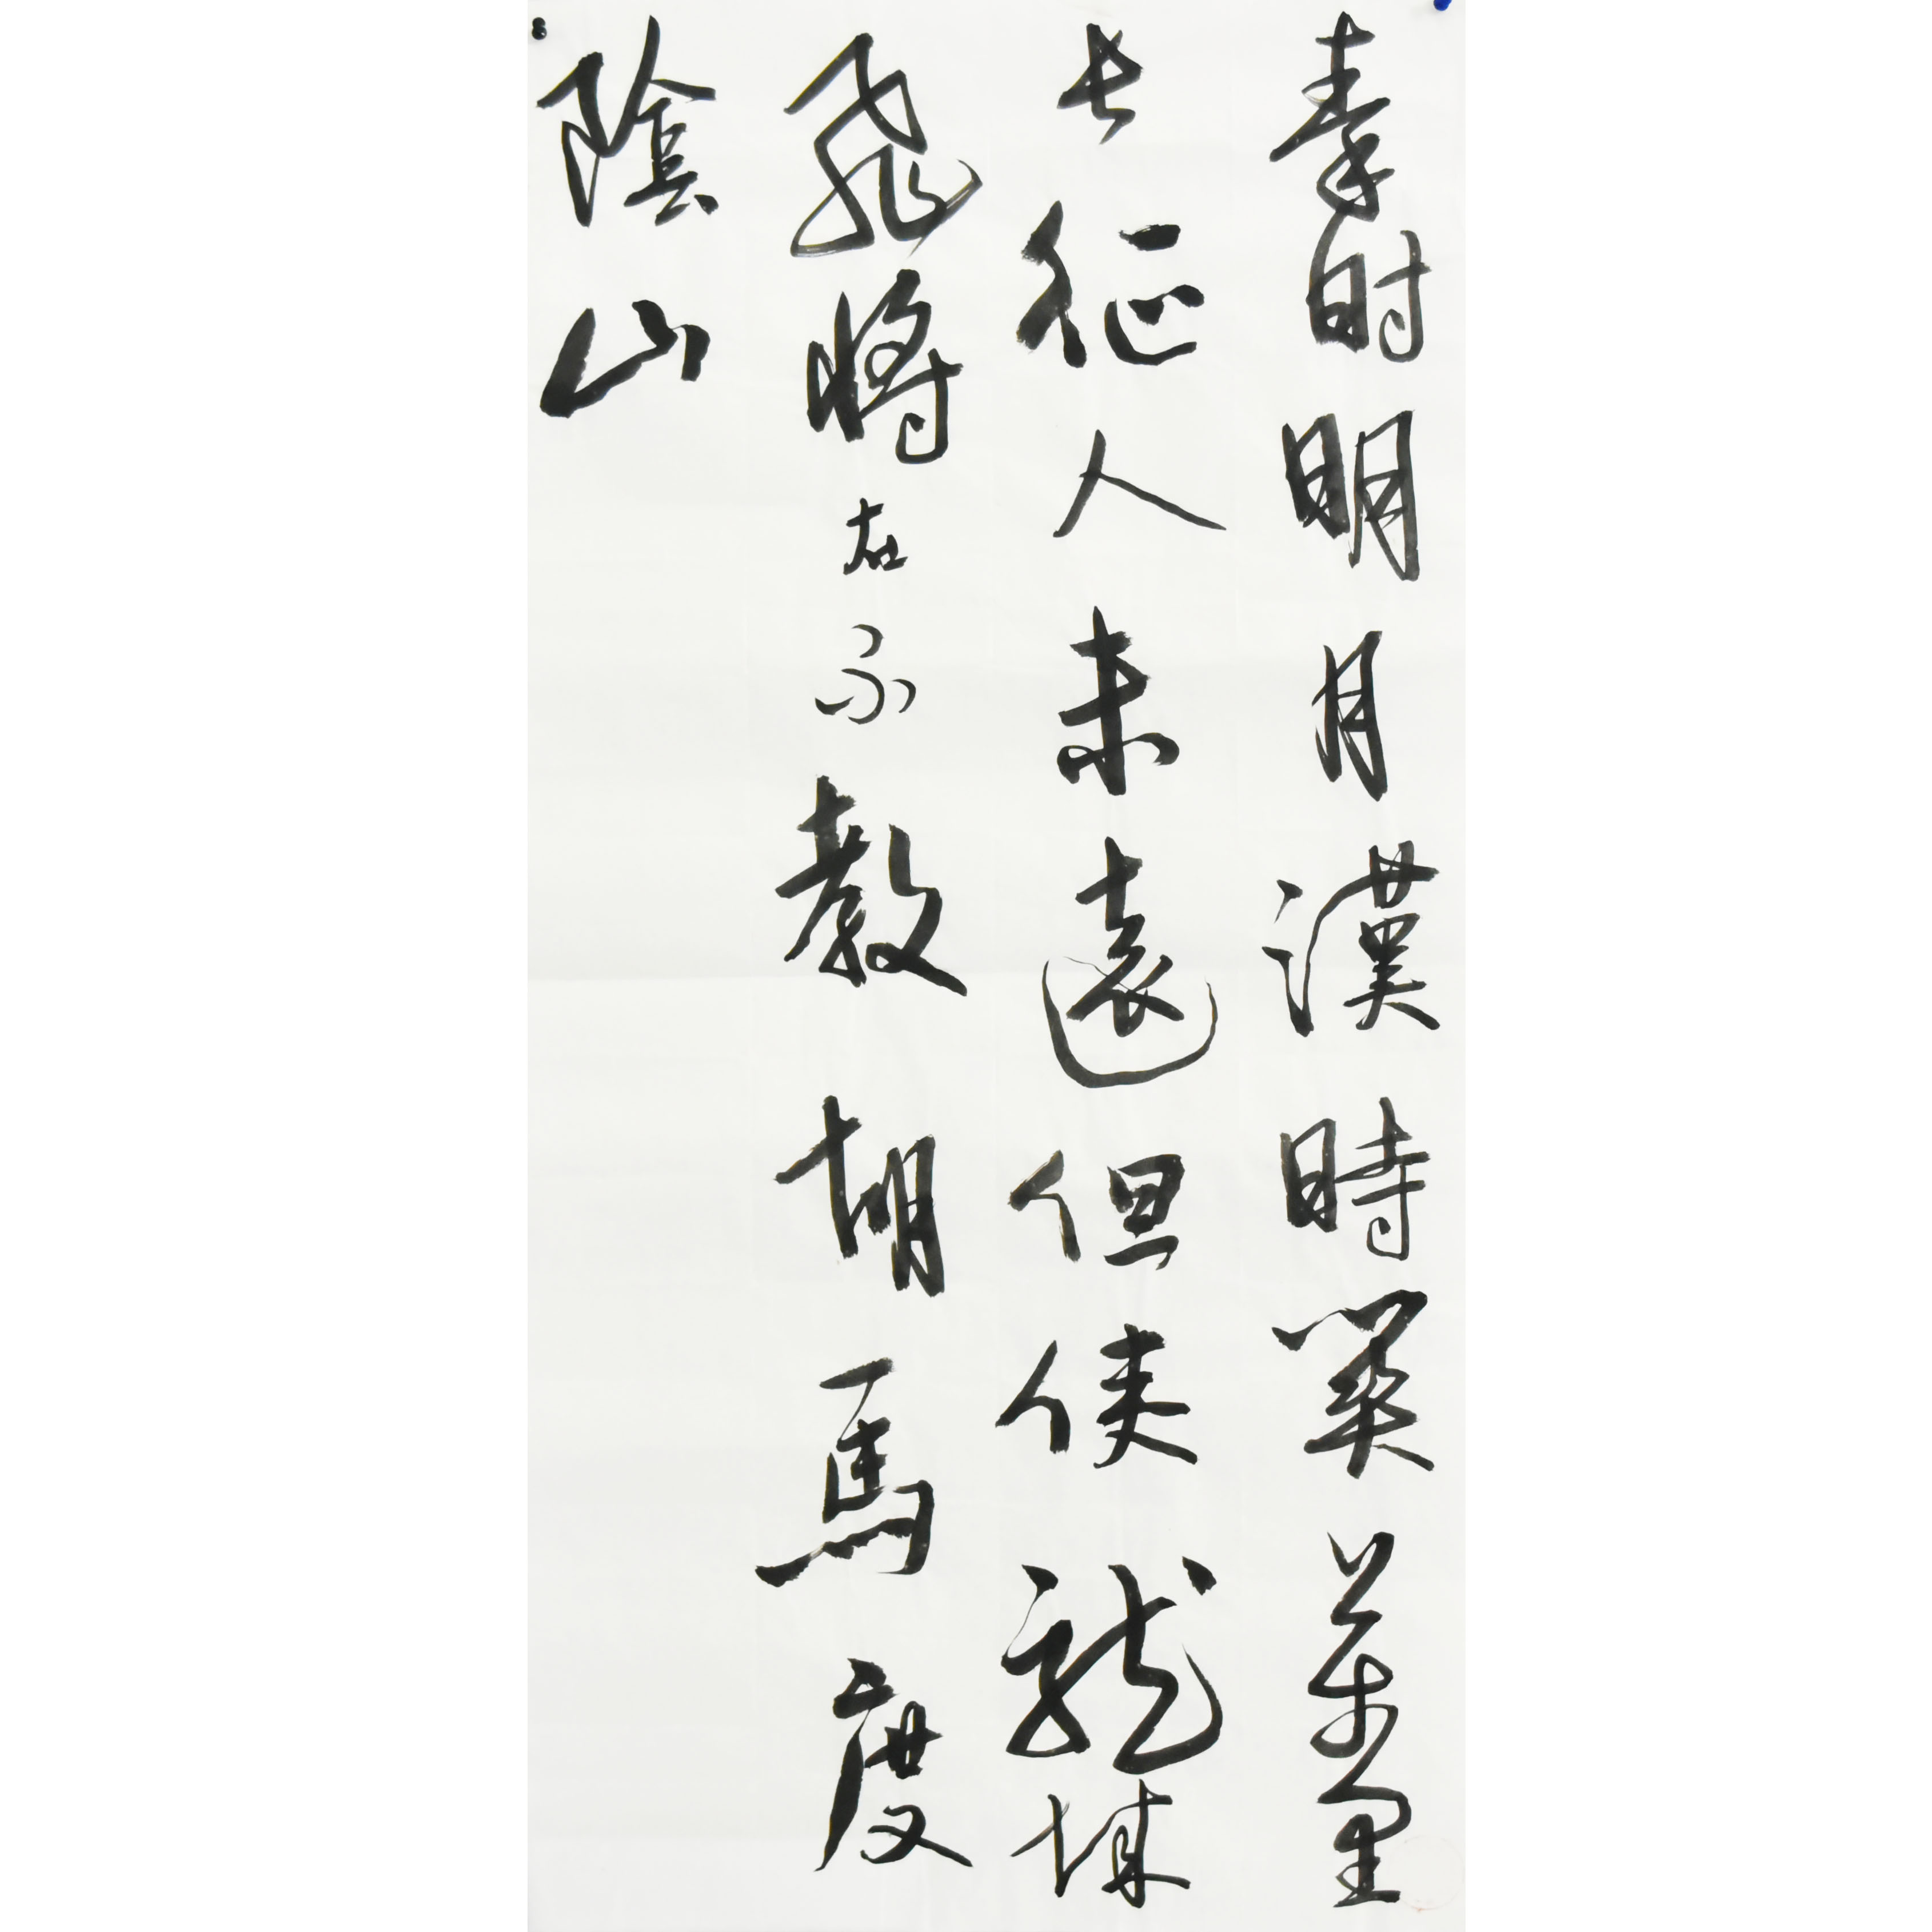 秦时明月漢時関萬里
长征人未遠但使龍城
飛將在不教胡馬度
陰山